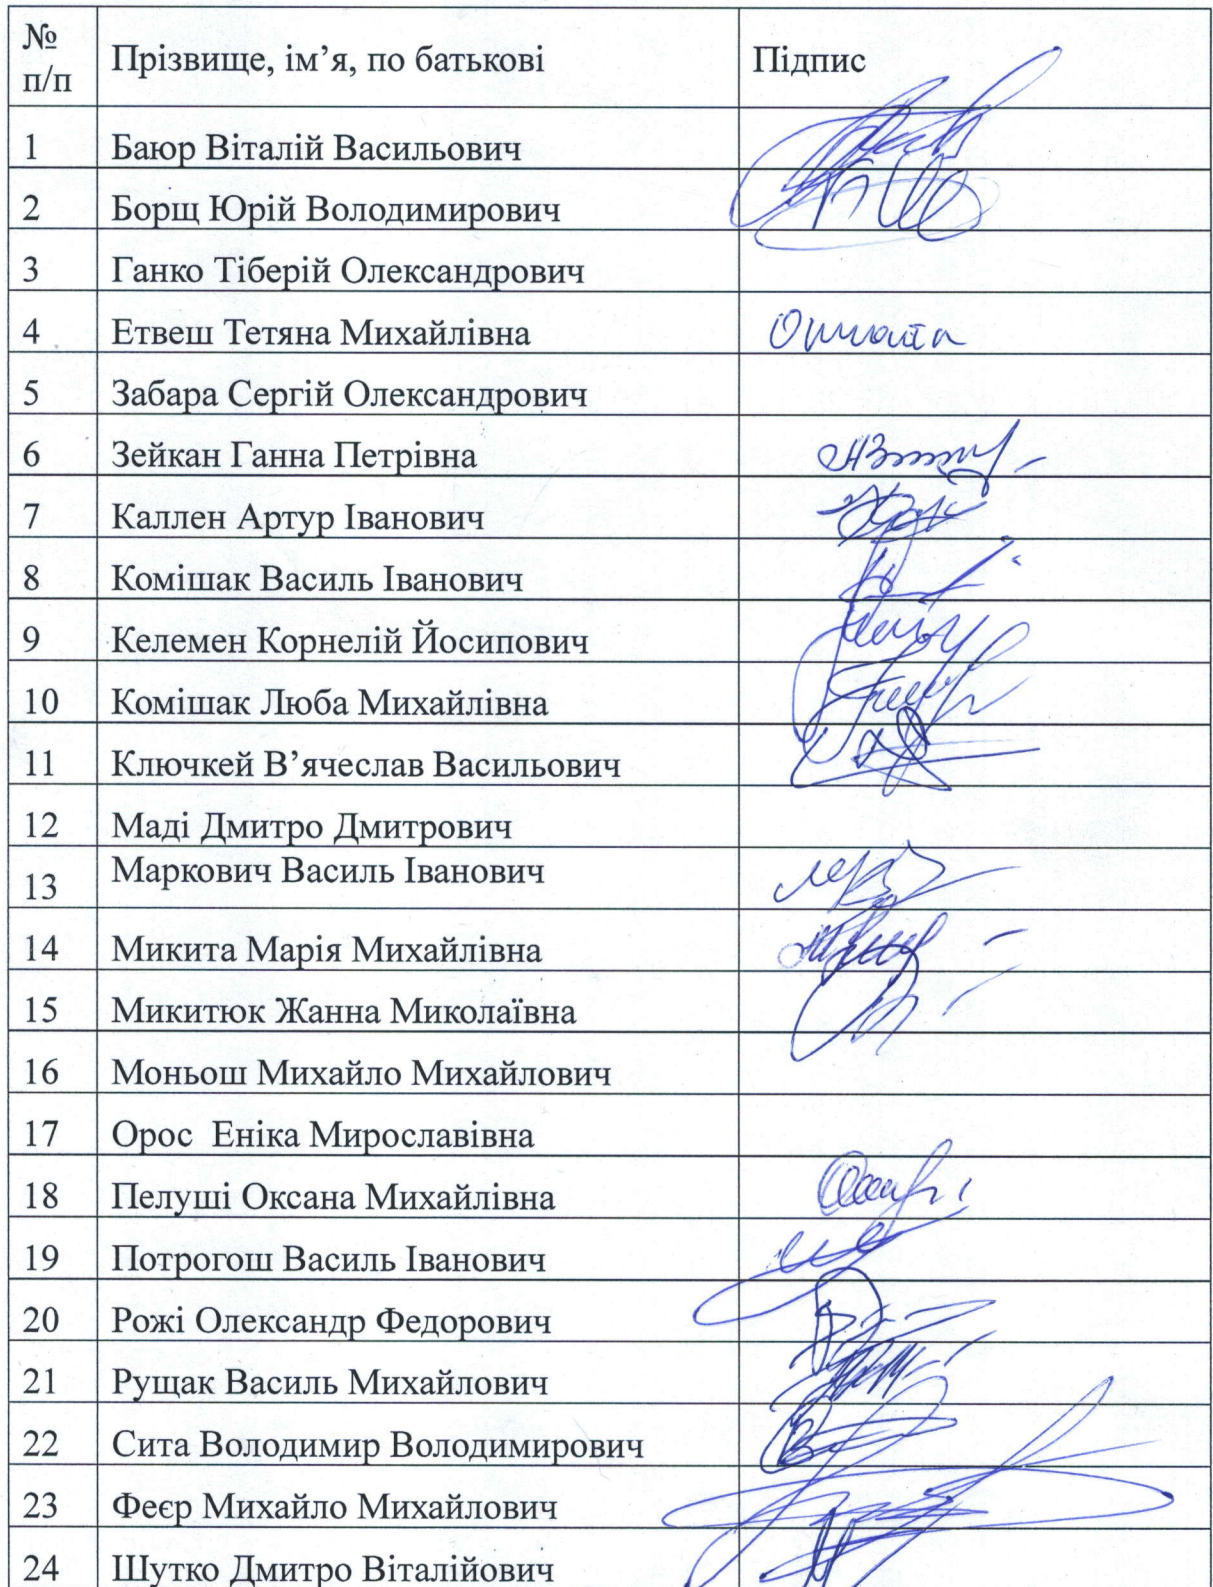 № п/п Прізвище, ім’я, по батькові Підпис
1 Баюр Віталій Васильович
2 Борщ Юрій Володимирович
3 Ганко Тіберій Олександрович
4 Етвеш Тетяна Михайлівна
5 Забара Сергій Олександрович
6 Зейкан Ганна Петрівна
7 Каллен Артур Іванович
8 Комішак Василь Іванович
9 Келемен Корнелій Йосипович
10 Комішак Люба Михайлівна
11 Ключкей В’ячеслав Васильович
12 Маді Дмитро Дмитрович
13 Маркович Василь Іванович
14 Микита Марія Михайлівна
15 Микитюк Жанна Миколаївна
16 Моньош Михайло Михайлович
17 Орос Еніка Мирославівна
18 Пелуші Оксана Михайлівна
19 Потрогош Василь Іванович
20 Рожі Олександр Федорович
21 Рущак Василь Михайлович
22 Сита Володимир Володимирович
23 Феєр Михайло Михайлович
24 Шутко Дмитро Віталійович